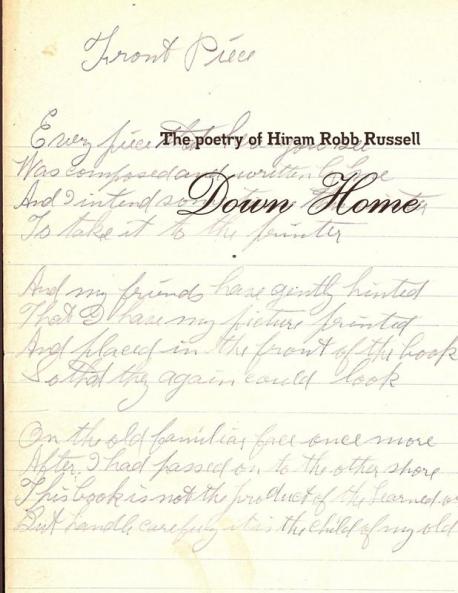 Front Piece
The poetry of Hiram Robb Russell
Down Home
Every piece that here you see
Was composed and written by me
And I intend some
To take it to the printer
And my friends have gently hinted
That I have my picture printed
And placed in the front of the book
So that they again could look
On the old familiar face once more
After I had passed on to the other shore
This book is not the product of the learned or
But handle carefully it is the child of my old